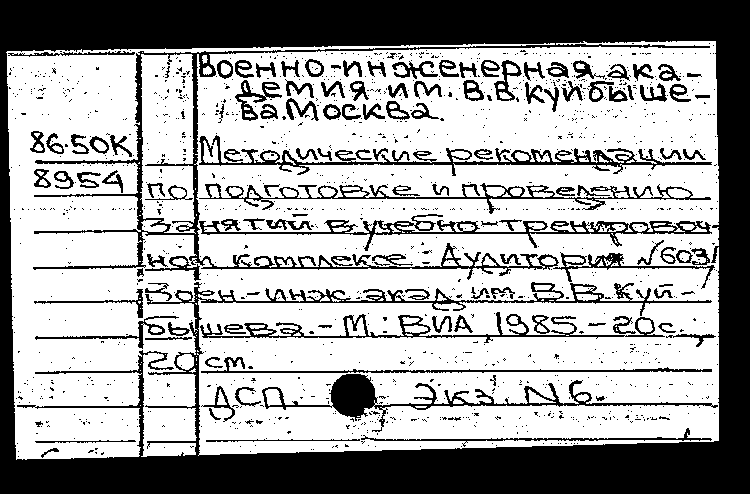 Военно-инженерная ака-
демия им. В.В. Куйбыше-
ва. Москва.
86-50К Методические рекомендации
8954 по подготовке и проведению
занятий в учебно-тренировоч-
ном комплексе: Аудитория №603/
Воен.-инж. акад. им. В.В. Куй-
бышева. - М.: ВИА, 1985. - 20с.;
20 см.
ДСП. Экз. N 6.